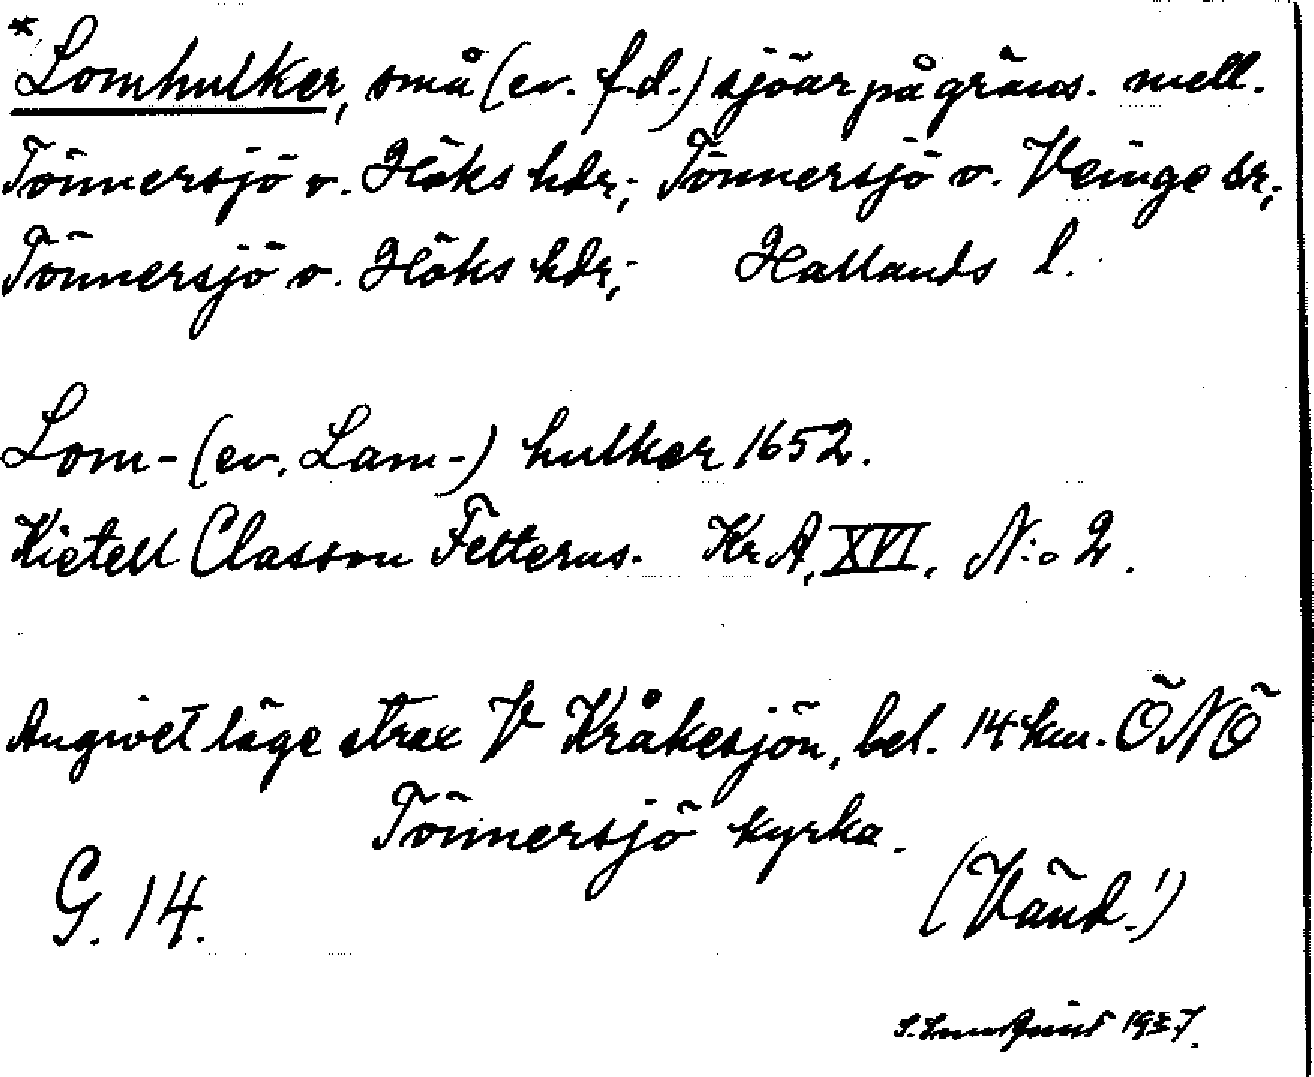 *
Lomhulker, små (ev. f.d.) sjöar på gräns. mell.
Tönnersjö o. Höks hdr; Tönnersjö o. Veinge sr;
Tönnersjö o. Höks hdr; Hallands l.
Lom- (ev. Lam-) hulker 1652.
Kietell Classon Felterus. Kr A, XVI, N:o 2.
Angivet läge strax V Kråkesjön, bel. 14 km. ÖNÖ
Tönnersjö kyrka.
G. 14.
(Vänd!)
1937.